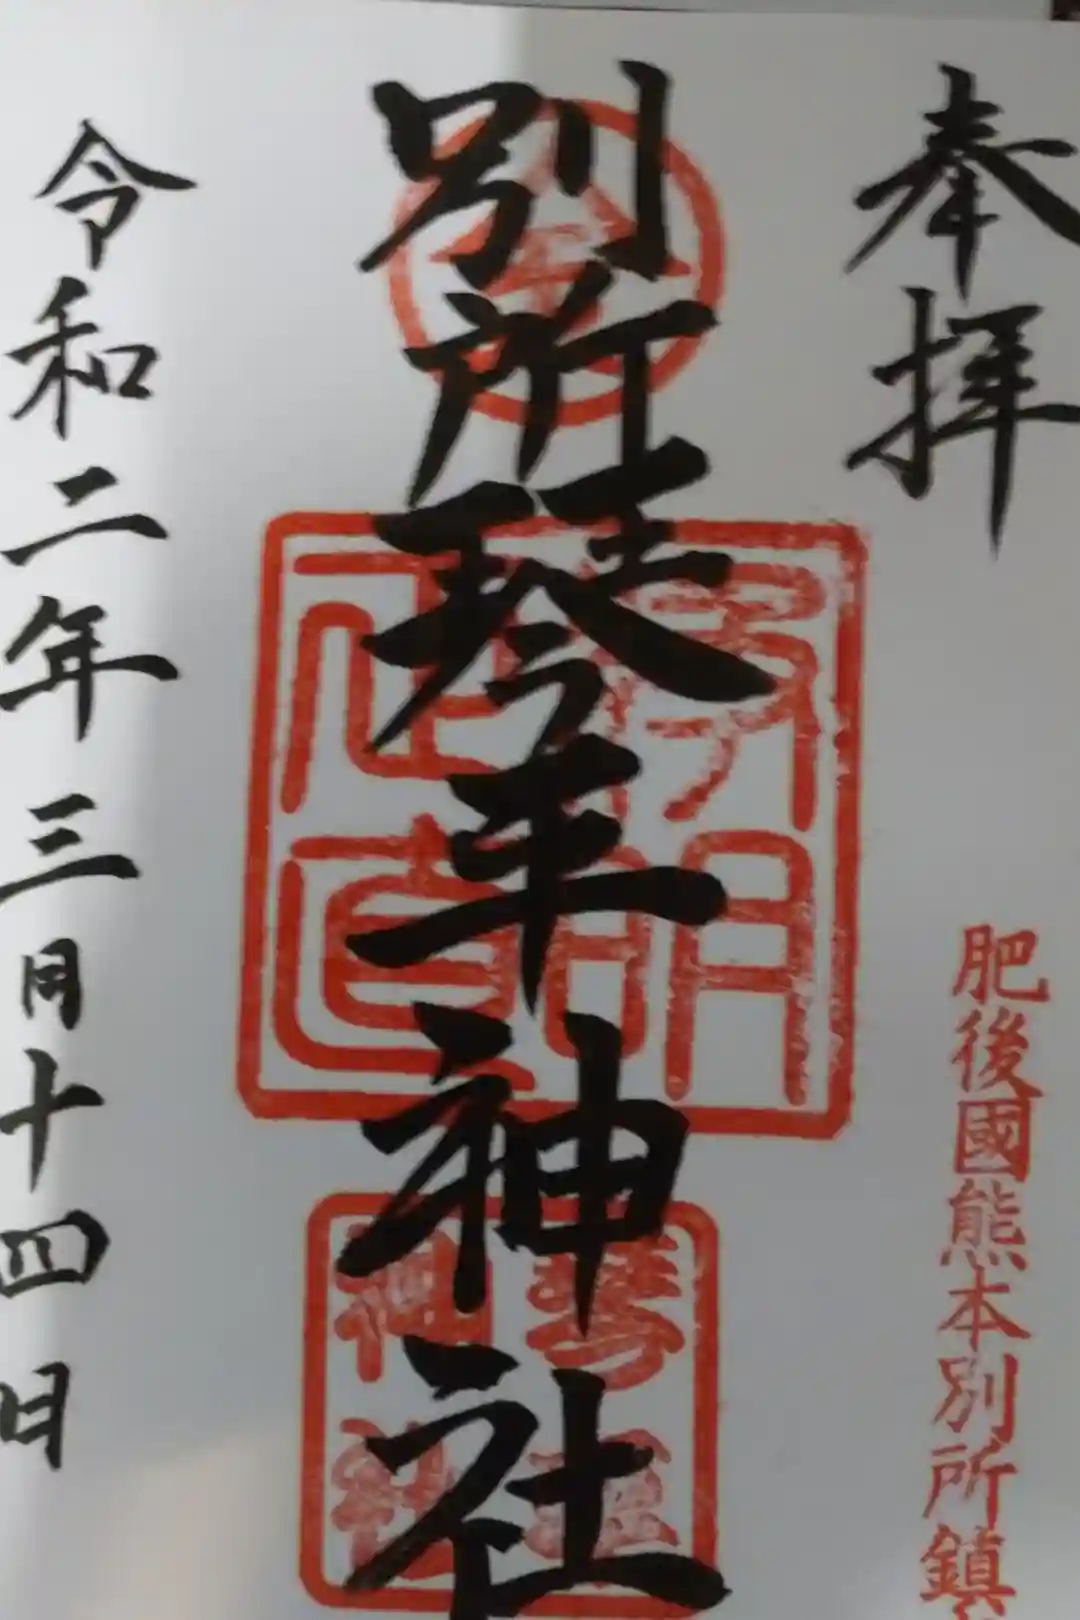 奉拝
肥後國熊本別所鎮
別所琴平神社
琴平
神社
令和二年三月十四日